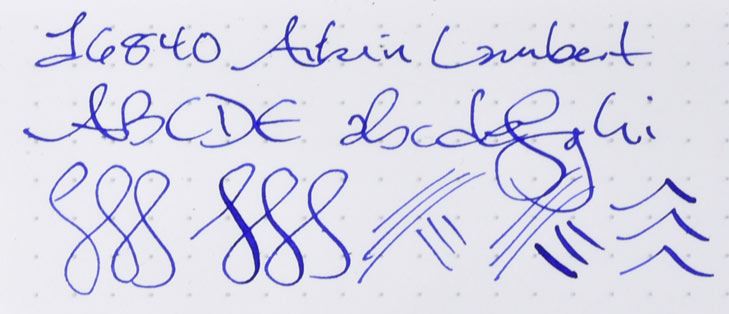 26840 Aikin Lambert
ABCDE abcdefghi